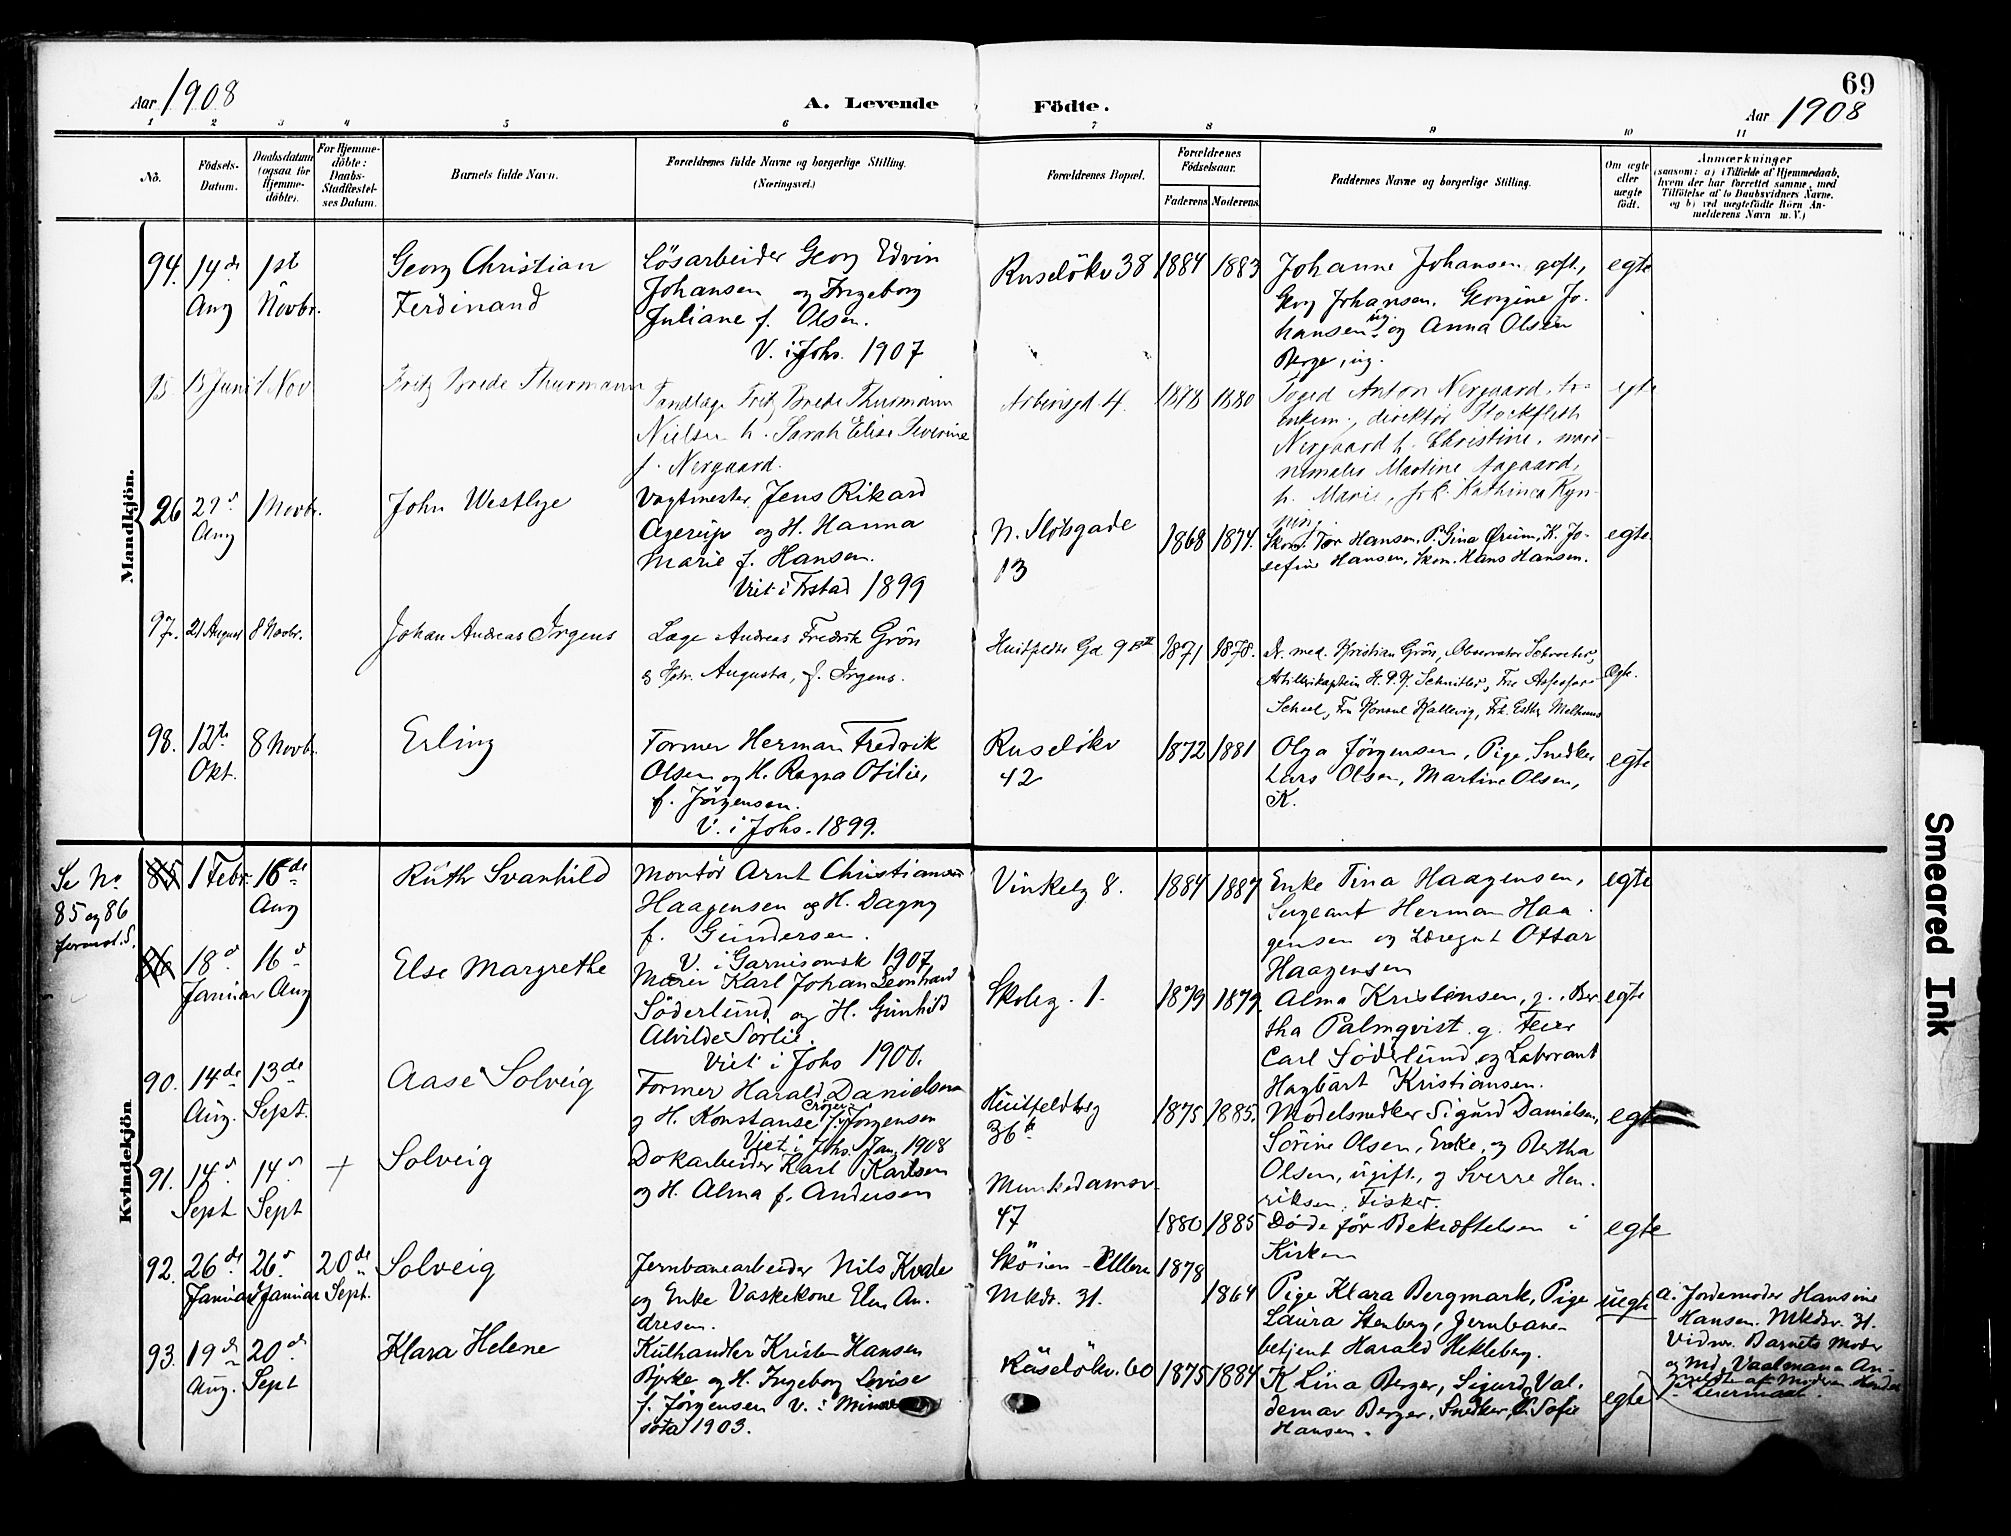 69
Aar 1908
A. Levende Födte.
Aar 1908
1 2 3 4 5 6 7 8 9 10 11
No.
Födsels-Datum.
Daabsdatum (ogsaa for Hjemme-döbte).
For Hjemme-döbte: Daabs-Stadfæstel-ses Datum.
Barnets fulde Navn.
Forældrenes fulde Navne og borgerlige Stilling. (Næringsvei.)
Forældrenes Bopæl.
Forældrenes Födselsaar.
Faderens Moderens
Faddernes Navne og borgerlige Stilling.
Om ægte eller uægte födt.
Anmærkninger
(saasom: a) i Tilfælde af Hjemmedaab,
hvem der har forrettet samme, med
Tilföielse af to Daabsvidners Navne,
og b) ved uægtefödte Börn An-
melderens Navn m. V.)
Mandkjön.
94. 14de Aug 1ste Novbr.
Georg Christian
Ferdinand
Lösarbeider Georg Edvin
Johansen og Ingeborg
Juliane f. Olsen.
V. i Johs. 1907
Ruselökv 38 1884 1883
Johanne Johansen, gift,
Georg Johansen, Georgine Jo-
hansen ug. og Anna Olsen
Berge, ug.
egte
95 1 Nov
Fritz Brede Thurmann
Tandlæge Fritz Brede Thurmann
Nielsen h. Sarah Elise Severine
f. Nergaard.
Arbinsgd. 4. 1878 1880
Anton Nergaard,
direktör Stockfleth
Nergaard h. Christine,
Martine Aagaard,
h. Marie, frk. Kathinca Ryn-
ning.
egte
26 27d Aug 1 Novbr.
John Westlye
Vagtmester Jens Rikard
Agerup og H. Hanna
Marie f. Hansen.
Viet i Frstad 1899
N. Slotsgade
13
1868 1874.
Skom. Tor Hansen, P. Gina Ørum, K. Jo-
sefine Hansen, Skom. Hans Hansen.
egte
97. 21 August 8 Novbr.
Johan Andreas Irgens
Læge Andreas Fredrik Grön
g Hstr. Augusta, f. Irgens.
Huitfeldts Gd 9 1871 1878.
Dr. med. Kristian Grön, Observator Schroeter,
Artillerikaptein H. P. Schnitler, Fru Assessor
Scheel, Fru Konsul Hallevig, Frk. Esther Melhuus
Ægte.
98. 12te Okt. 8 Novbr.
Erling
Former Herman Fredrik
Olsen og H. Ragna Otilie,
f. Jörgensen.
V. i Johs. 1899.
Ruselökv
42
1872 1881
Olga Jörgensen, Pige, Snedker
Lars Olsen, Martine Olsen,
K.
egte
Kvindekjön
Se No
85 og 86
85 1 Febr. 16de Aug
Ruth Svanhild
Montör Arnt Christiansen
Haagensen og H. Dagny
f. Gundersen.
V. i Garnisonsk 1907
Vinkelg 8. 1884 1887
Enke Tina Haagensen,
Sergeant Herman Haa
gensen og Læregut Ottar
Haagensen
egte
86 18d Januar 16d Aug
Else Margrethe
Murer Karl Johan Leonhard
Söderlund og H. Gunhild
Alvilde Sorlie.
Viet i Johs 1900.
Skoleg. 1. 1879 1879.
Alma Kristensen, g., Ber
tha Palmqvist g. Feier
Carl Söderlund og Laborant
Hagbart Kristiansen.
egte
90. 14de Aug. 13de Sept.
Aase Solveig
Former Harald Danielsen
g H. Konstanse f. Jörgensen
Viet i Johs. Jan. 1908
Huitfeldtsg
36b
1875 1885.
Modelsnedker Sigurd Danielsen,
Sörine Olsen, Enke, og Bertha
Olsen, ugift, g Sverre Hen-
riksen, Fisker.
egte
91. 14d Sept 14d Sept +
Solveig
Dokarbeider Karl Karlsen
og H. Alma f. Andersen
Munkedamsv.
47
1880 1885
Döde för Bekræftelsen i
Kirken
egte
92. 26de Januar 26d Januar 20de Sept.
Solveig
Jernbanearbeider Nils Kvale
og Enke Vaskekone Elen An.
dresen.
Sköien - Ullern 1878
Mkdv. 31. 1864
Pige Klara Bergmark, Pige
Laura Stenberg, Jernbane-
betjent Harald Hekleberg.
uegte
a. Jordemoder Hansine
Hansen. Mkdv. 31.
Vidner. Barnets Moder
og Md. Vaalmana An-
meldt af Moderen
Leiermaal.
93. 19de Aug. 20de Sept
Klara Helene
Kulhandler Kristen Hansen
Bjerke og H. Ingeborg Lovise
f. Jörgensen V. i Minne
sota 1903.
Ruselökv. 60 1875 1884
K Lina Berger, Sigurd Val.
demar Berger, Snedker, Sofie
Hansen.
egte
Smeared Ink